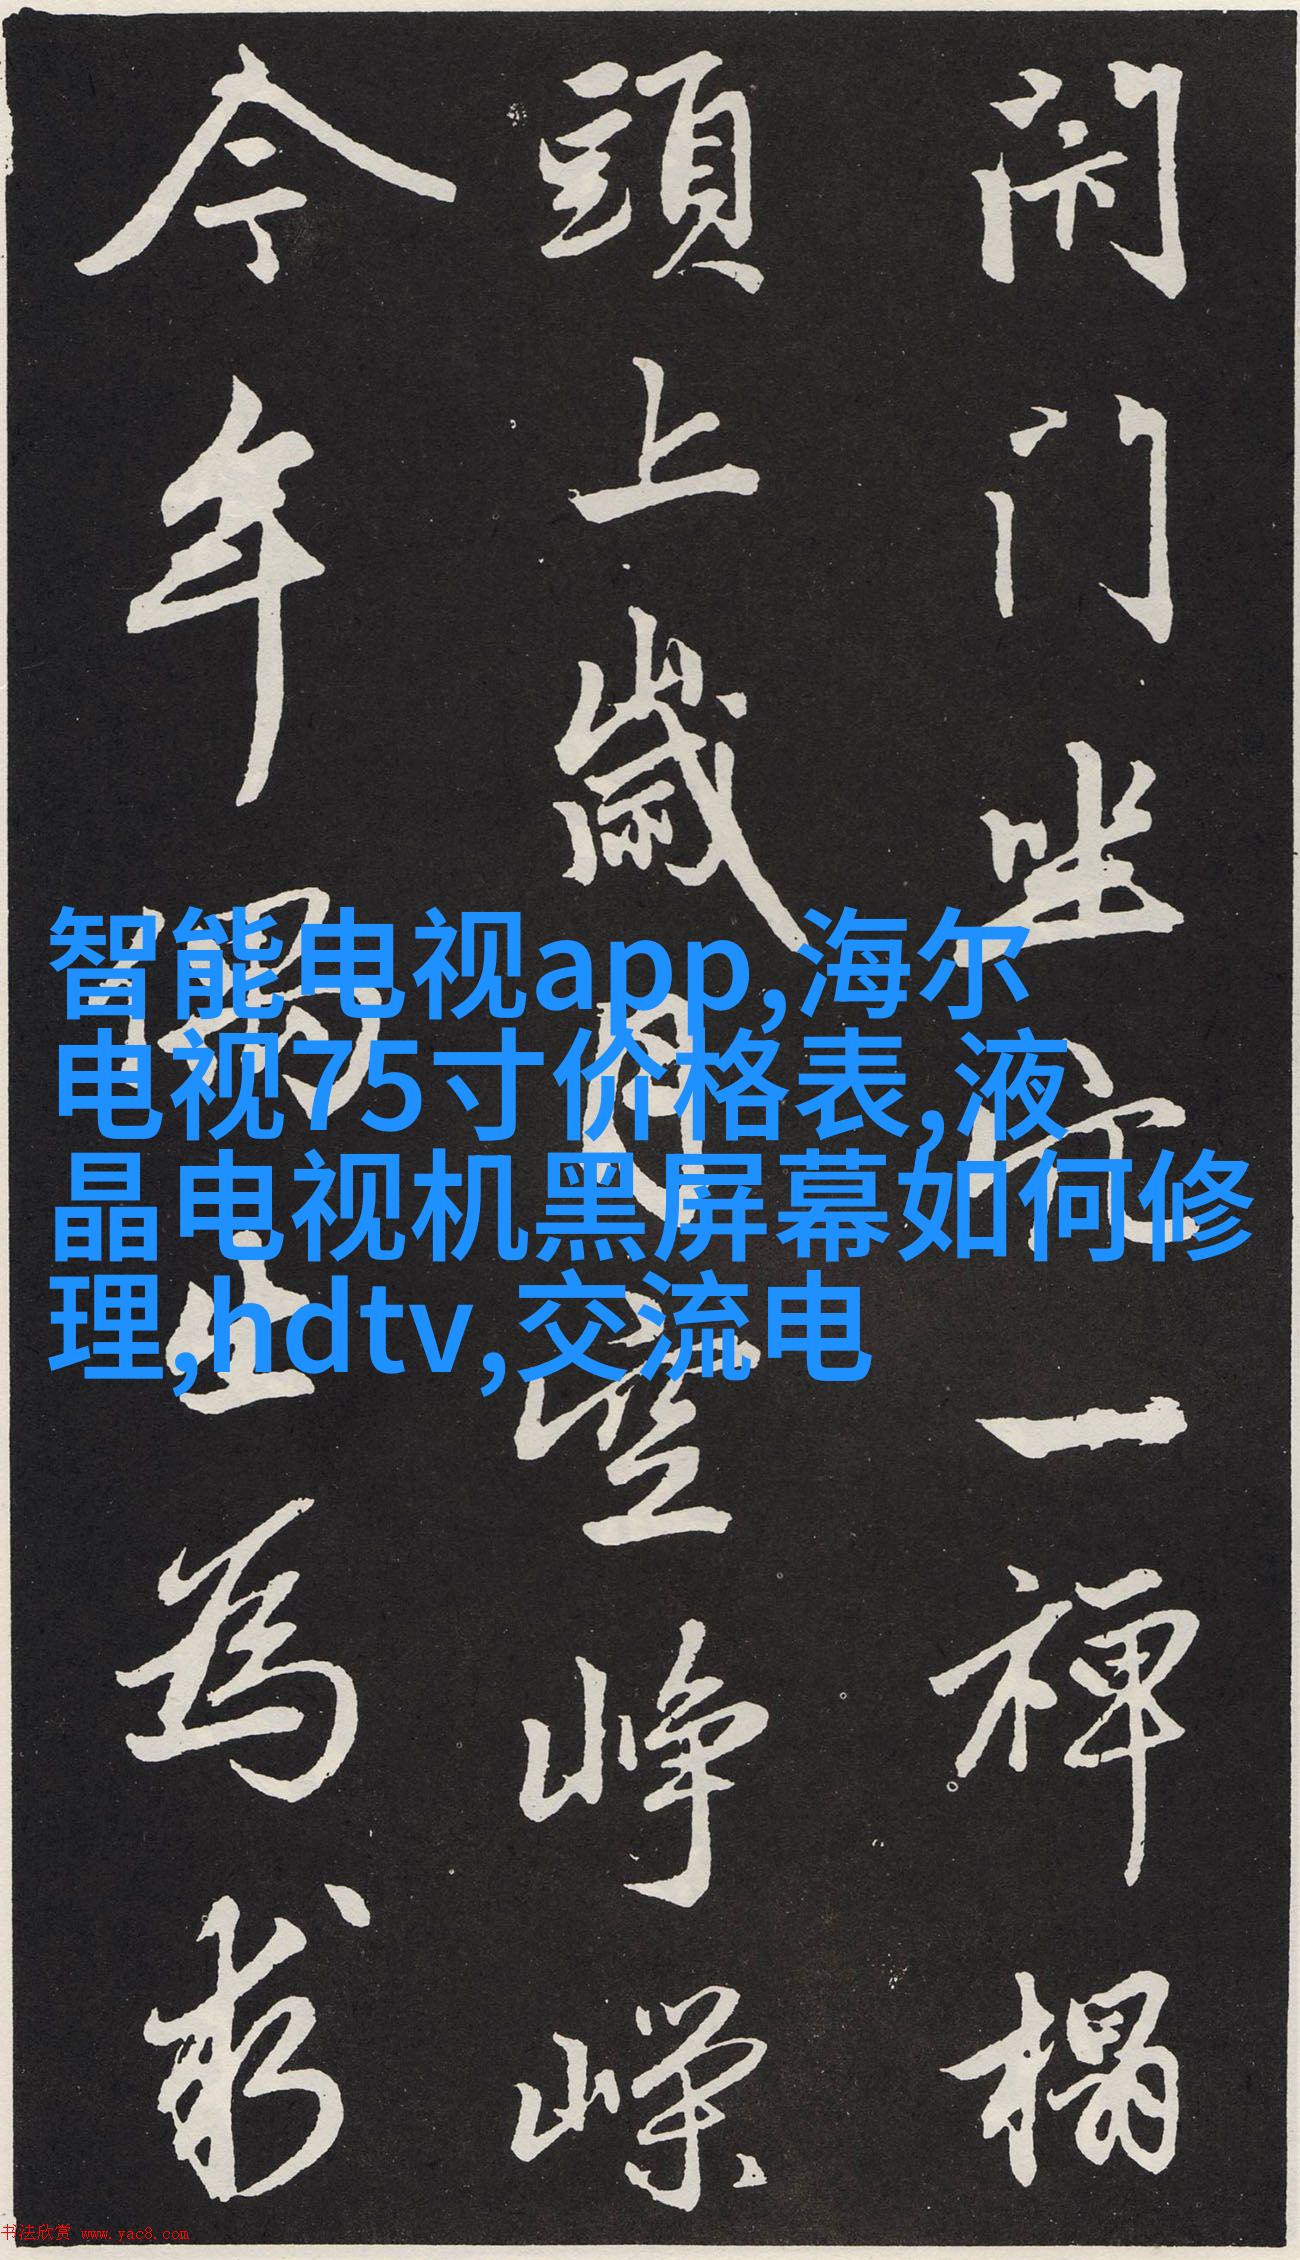 閉門坐穴一禪榻
頭上歲月空崢嶸
今年偶出為求
智能电视app,海尔
电视75寸价格表,液
晶电视机黑屏幕如何修
理,hdtv,交流电
书法欣赏 www.yac8.com